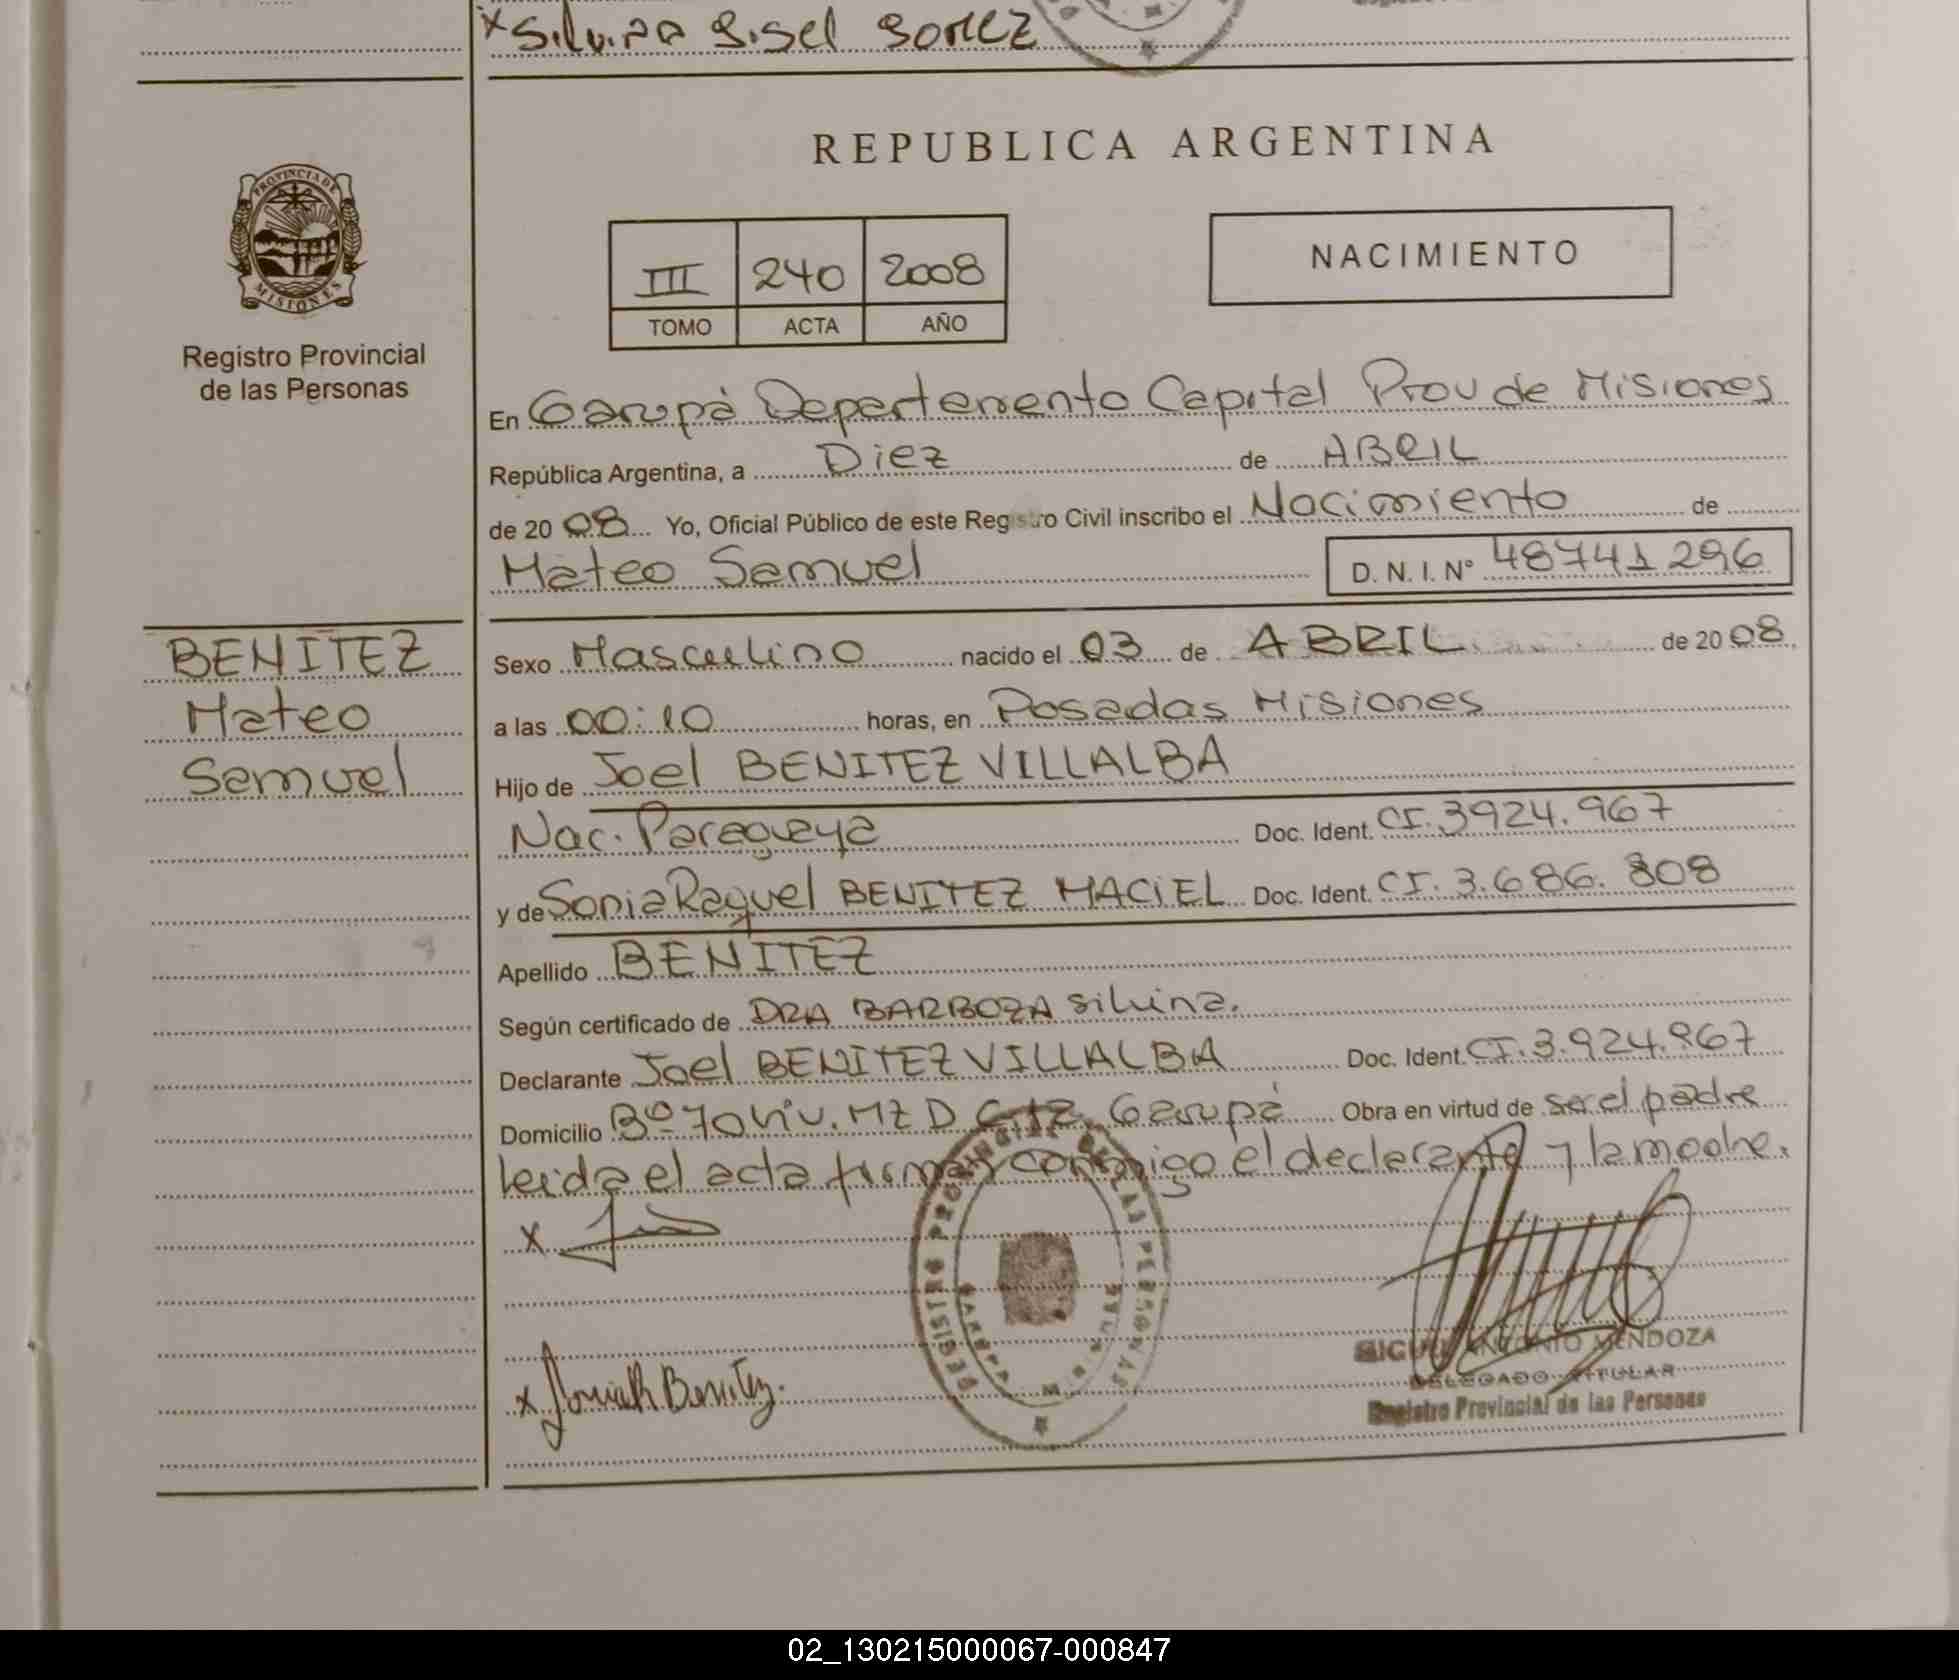 x Silvina Gisel GOMEZ
PROVINCIA DE
MISIONES
Registro Provincial
de las Personas
REPUBLICA ARGENTINA
III 240 2008
TOMO ACTA AÑO
NACIMIENTO
En Garupá Departamento Capital Prov de Misiones
República Argentina, a Diez de ABRIL
de 2008 Yo, Oficial Público de este Registro Civil inscribo el Nacimiento de
Mateo Samuel D. N. I. N° 48741296
BENITEZ
Mateo
Samuel
Sexo Masculino nacido el 03 de ABRIL de 2008
a las 00:10 horas, en Posadas Misiones
Hijo de Joel BENITEZ VILLALBA
Nac. Paraguaya Doc. Ident. CI. 3924.967
y de Sonia Raquel BENITEZ MACIEL Doc. Ident. CI. 3.686.808
Apellido BENITEZ
Según certificado de DRA BARBOZA Silvina.
Declarante Joel BENITEZ VILLALBA Doc. Ident. CI. 3.924.967
Domicilio Bº 70 Viv. MZ D C 12 Garupá Obra en virtud de ser el padre
leida el acta firman conmigo el declarante y la madre.
x
x Benitez.
REGISTRO PROVINCIAL DE LAS PERSONAS
GARUPA
ANTONIO MENDOZA
DELEGADO TITULAR
Registro Provincial de las Personas
02_130215000067-000847